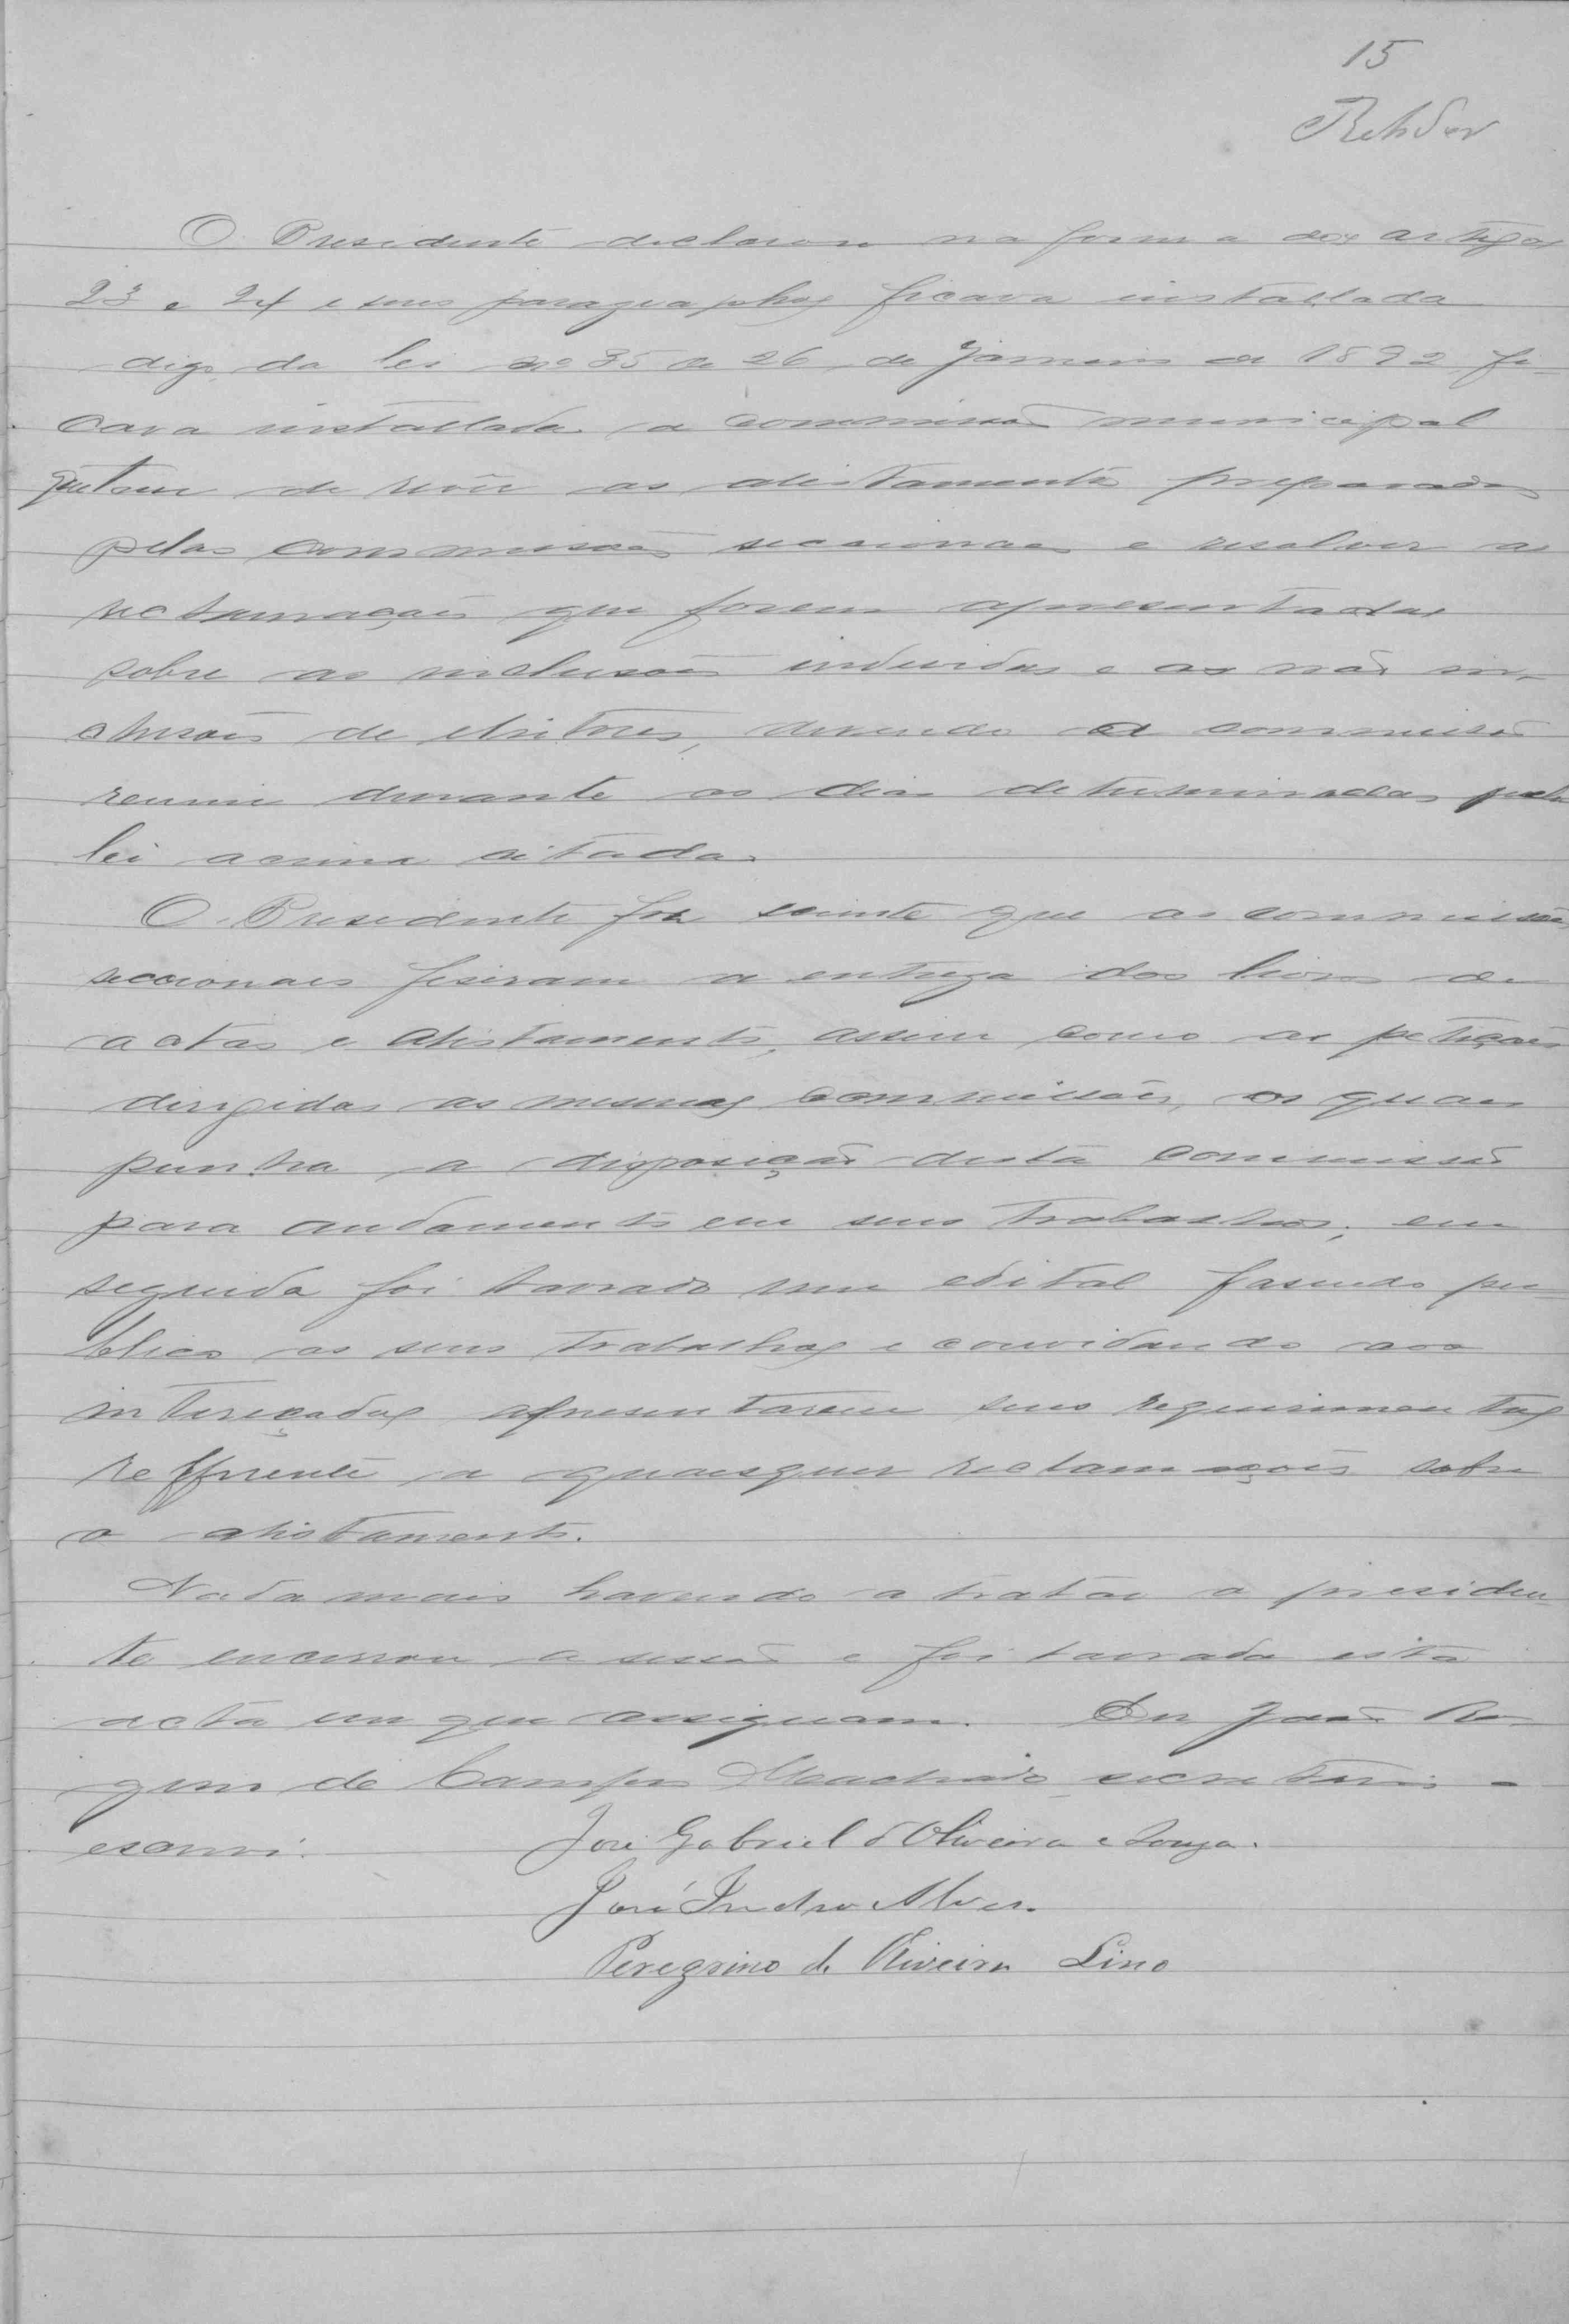 15
Rehder
O Presidente declarou na forma dos artigos
23 e 24 e seus paragraphos ficava installada
digo da lei nº 35 de 26 de Janeiro de 1892 fi-
cava installada a commissão municipal
que tem de revêr os alistamentos preparados
pelas commissões seccionaes e resolver as
reclamações que forem apresentadas
sobre as inclusões indevidas e as não in-
clusões de eleitores, devendo a commissão
reunir durante os dias determinados pela
lei acima citada.
O Presidente fez sciente que as commissões
seccionaes fiseram a entrega dos livros de
actas e alistamento, assim como as petições
dirigidas as mesmas commissões, os quaes
punha a disposição desta commissão
para andamento em seus trabalhos; em
seguida foi lavrado um edital fasendo pu-
blico os seus trabalhos e convidando aos
intereçados apresentarem seus requerimentos
refferente a quaesquer reclamações sobre
o alistamento.
Nada mais havendo a tratar o presiden-
te encerrou a sessão e foi lavrada esta
acta em que assignam. Eu João
de Campos Machado secretario
escrevi. José Gabriel d'Oliveira e Souza.
José Alves.
Peregrino de Oliveira Lino